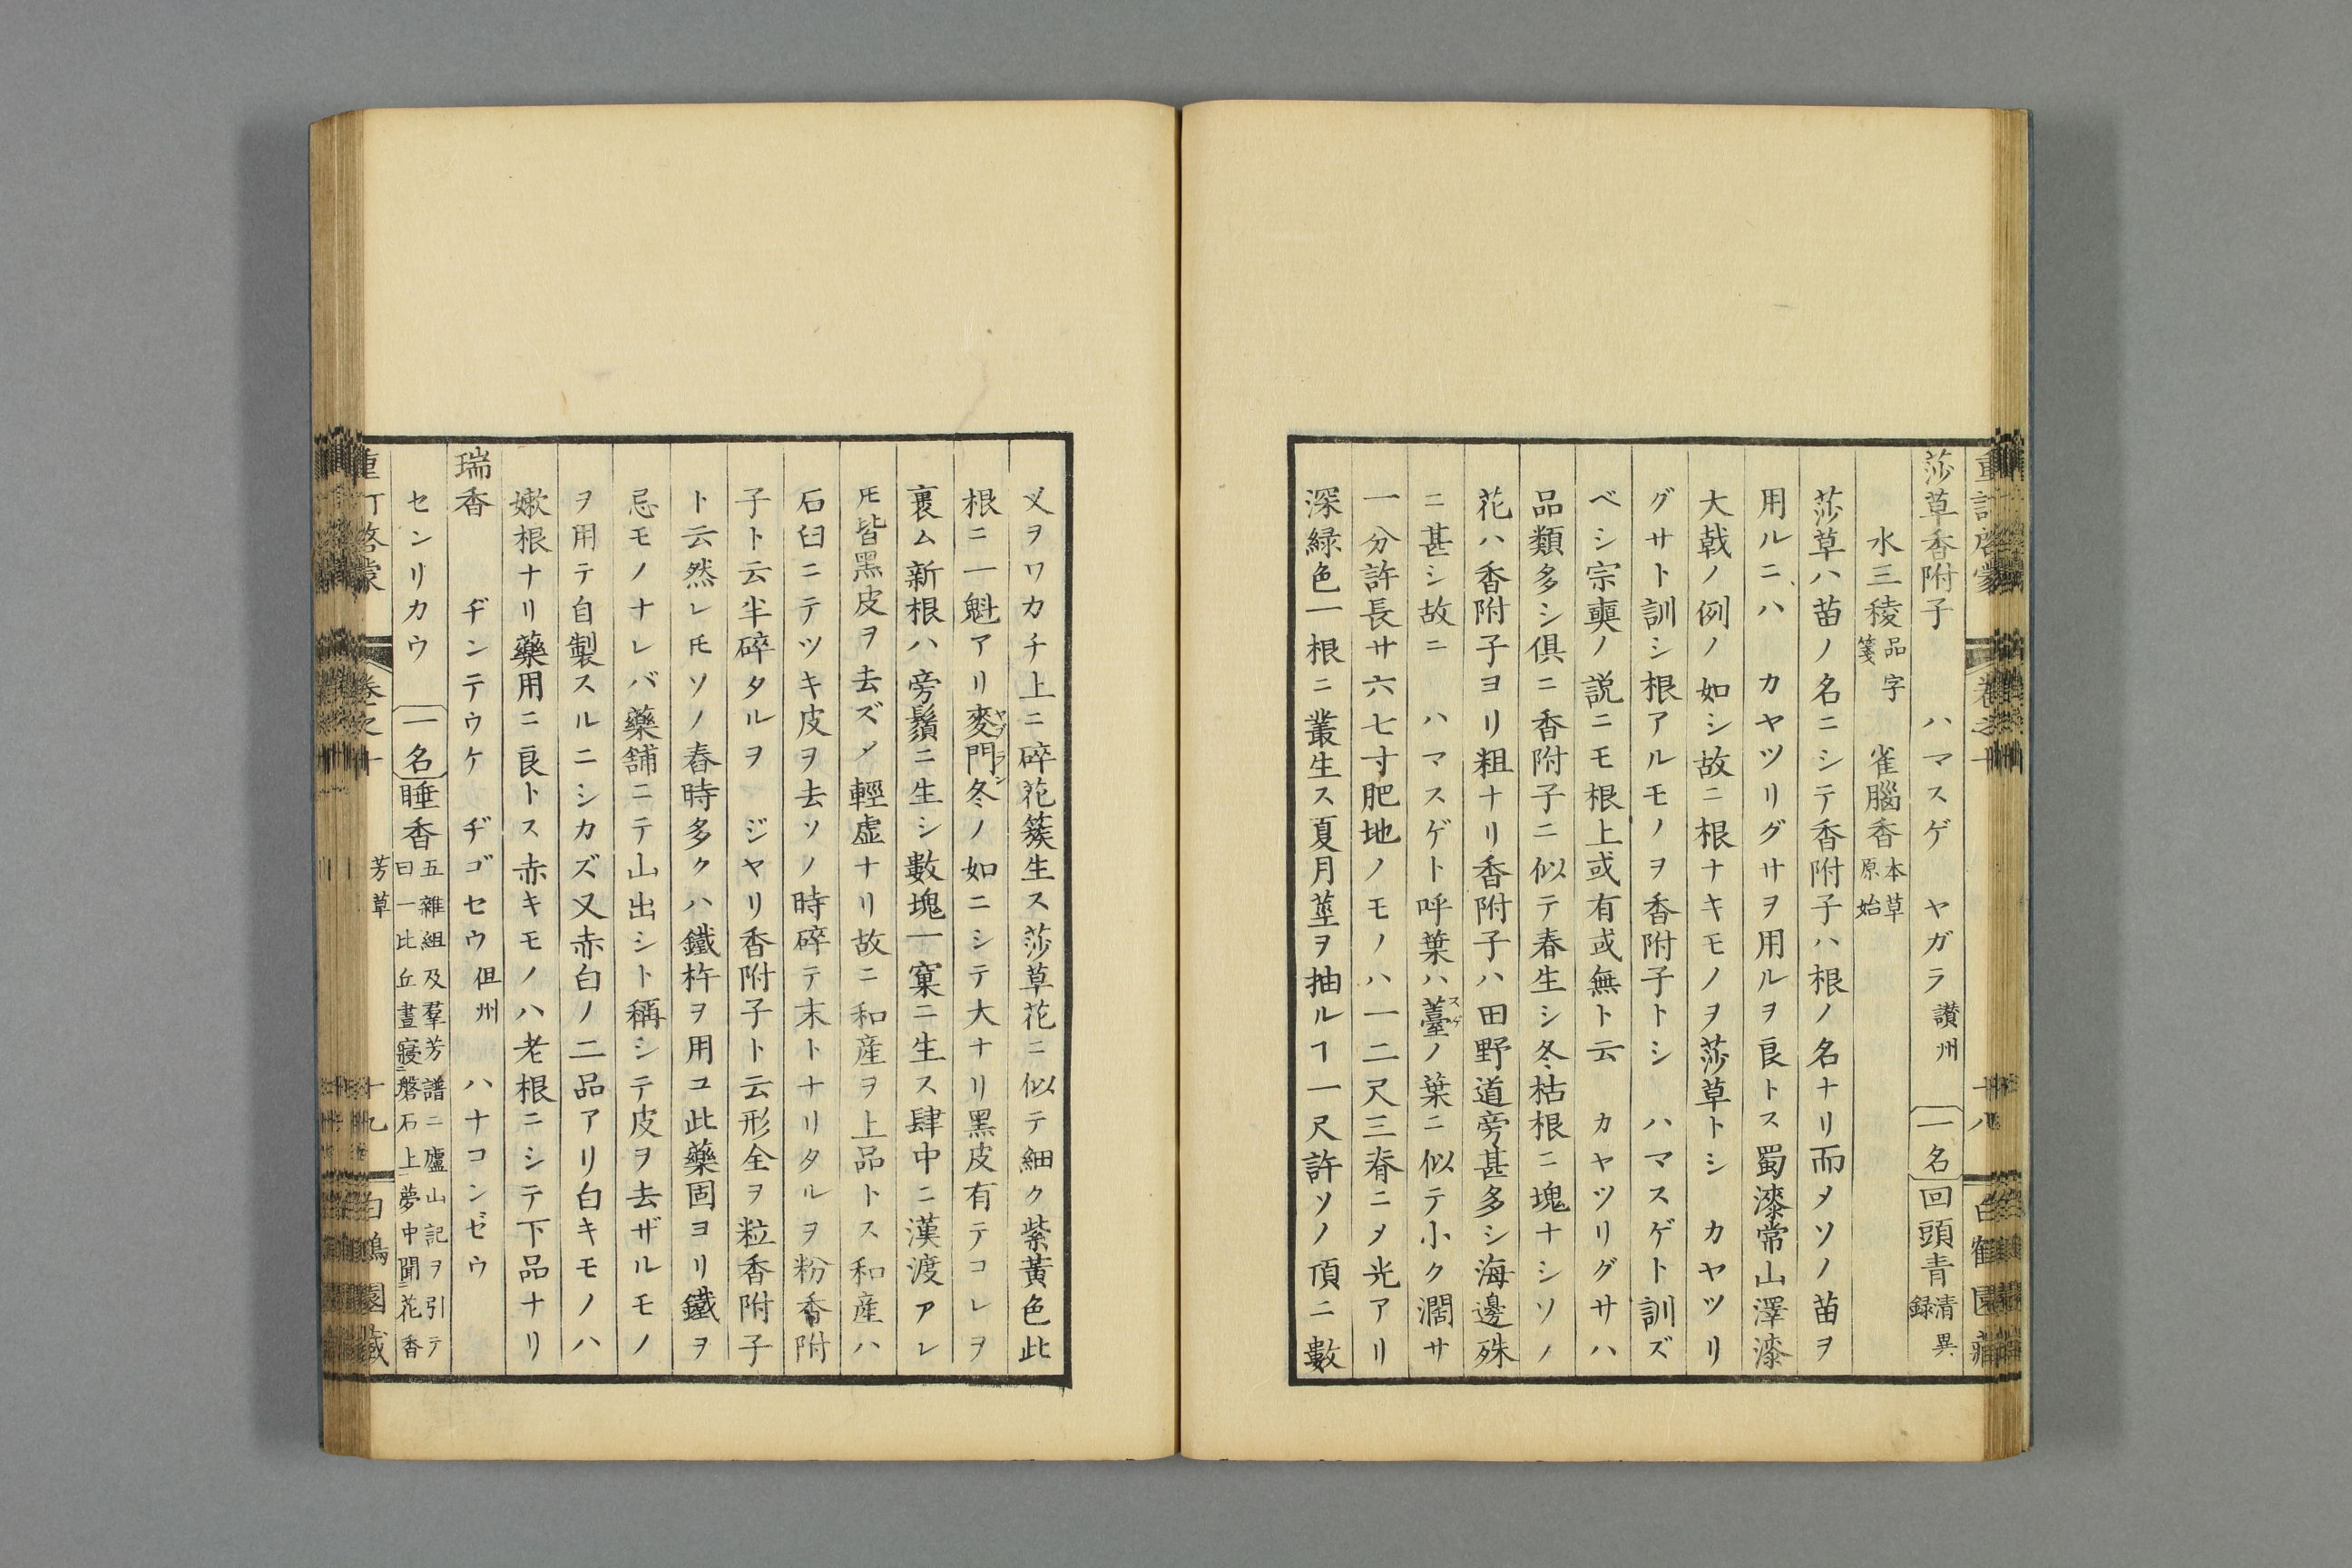 莎草香附子　ハマスゲ　ヤガラ讃州　一名回頭青清異録
水三稜品字箋　雀腦香本草原始
莎草ハ苗ノ名ニシテ香附子ハ根ノ名ナリ而メソノ苗ヲ
用ルニハ　カヤツリグサヲ用ルヲ良トス蜀漆常山澤漆
大戟ノ例ノ如シ故ニ根ナキモノヲ莎草トシ　カヤツリ
グサト訓シ根アルモノヲ香附子トシ　ハマスゲト訓ズ
ベシ宗奭ノ説ニモ根上或有或無ト云　カヤツリグサハ
品類多シ俱ニ香附子ニ似テ春生シ冬枯根ニ塊ナシソノ
花ハ香附子ヨリ粗ナリ香附子ハ田野道旁甚多シ海邊殊
ニ甚シ故ニ　ハマスゲト呼葉ハ薹スゲノ葉ニ似テ小ク濶サ
一分許長サ六七寸肥地ノモノハ一二尺三脊ニメ光アリ
深緑色一根ニ叢生ス夏月莖ヲ抽ルヿ一尺許ソノ頂ニ數
乂ヲワカチ上ニ碎花簇生ス莎草花ニ似テ細ク紫黃色此
根ニ一魁アリ麥門冬ヤブランノ如ニシテ大ナリ黑皮有テコレヲ
裹ム新根ハ旁鬚ニ生シ數塊一窠ニ生ス肆中ニ漢渡アレ
𪜈皆黑皮ヲ去ズメ輕虚ナリ故ニ和産ヲ上品トス和産ハ
石臼ニテツキ皮ヲ去ソノ時碎テ末トナリタルヲ粉香附
子ト云半碎タルヲ　ジヤリ香附子ト云形全ヲ粒香附子
ト云然レ𪜈ソノ舂時多クハ鐵杵ヲ用ユ此藥固ヨリ鐵ヲ
忌モノナレバ藥舖ニテ山出シト稱シテ皮ヲ去ザルモノ
ヲ用テ自製スルニシカズ又赤白ノ二品アリ白キモノハ
嫩根ナリ藥用ニ良トス赤キモノハ老根ニシテ下品ナリ
瑞香　ヂンテウケ　ヂゴセウ但州　ハナコンゼウ
センリカウ　一名睡香五雜組及羣芳譜ニ廬山記ヲ引テ曰一比丘晝寢磐石上夢中聞花香
芳草